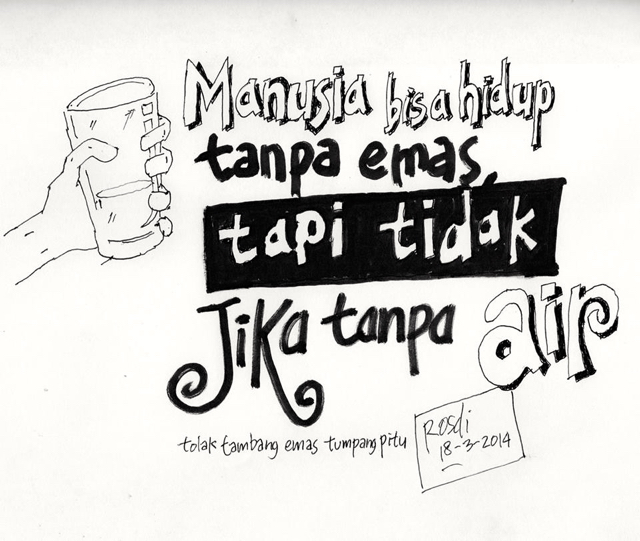 Manusia bisa hidup
tanpa emas,
tapi tidak
Jika tanpa air
tolak tambang emas tumpang pitu
Rosdi
18-3-2014